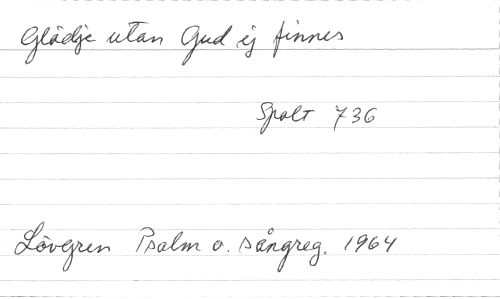 Glädje utan Gud ej finnes
Spalt 736
Lövgren Psalm o. sångreg. 1964